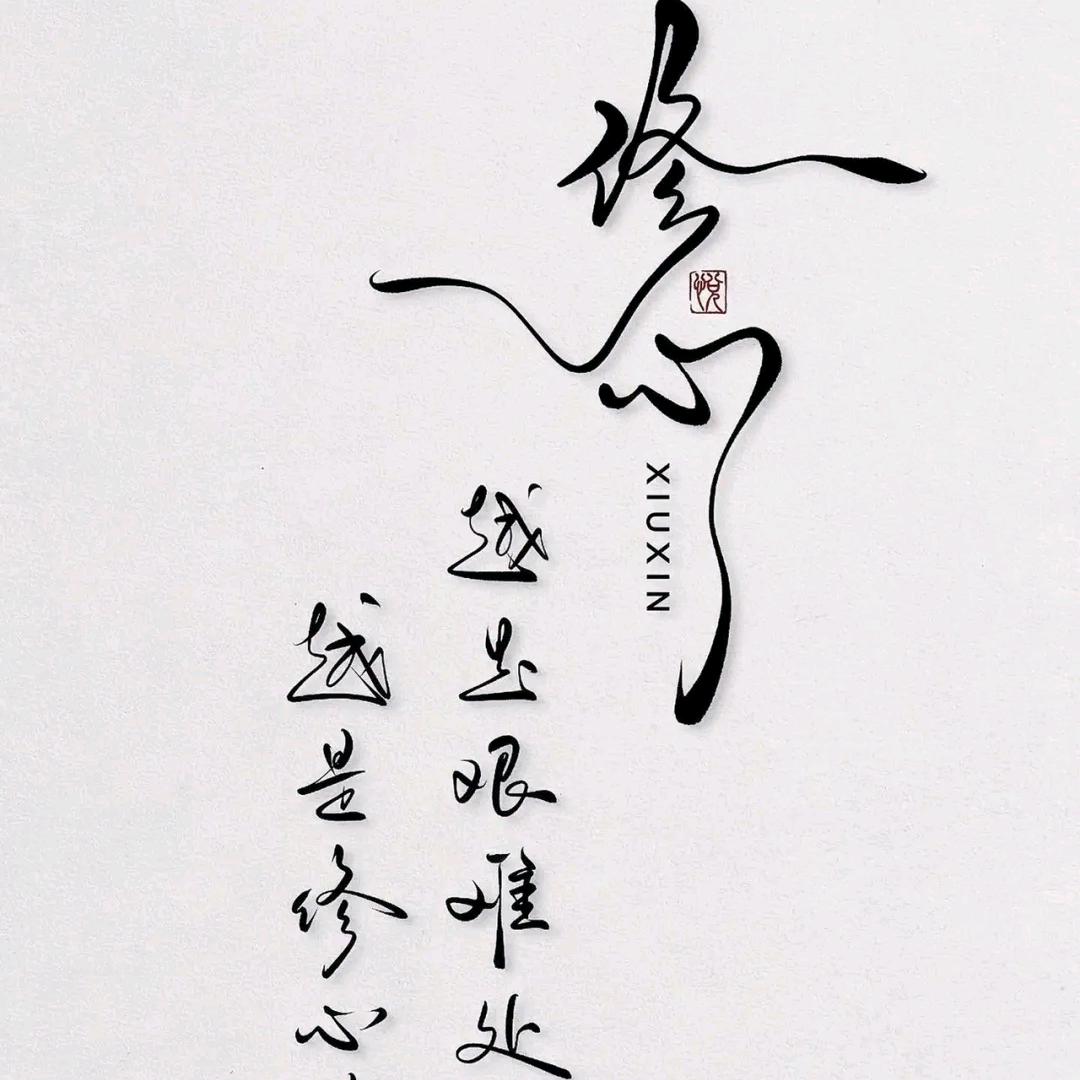 修心
XIUXIN
越是艰难处
越是修心